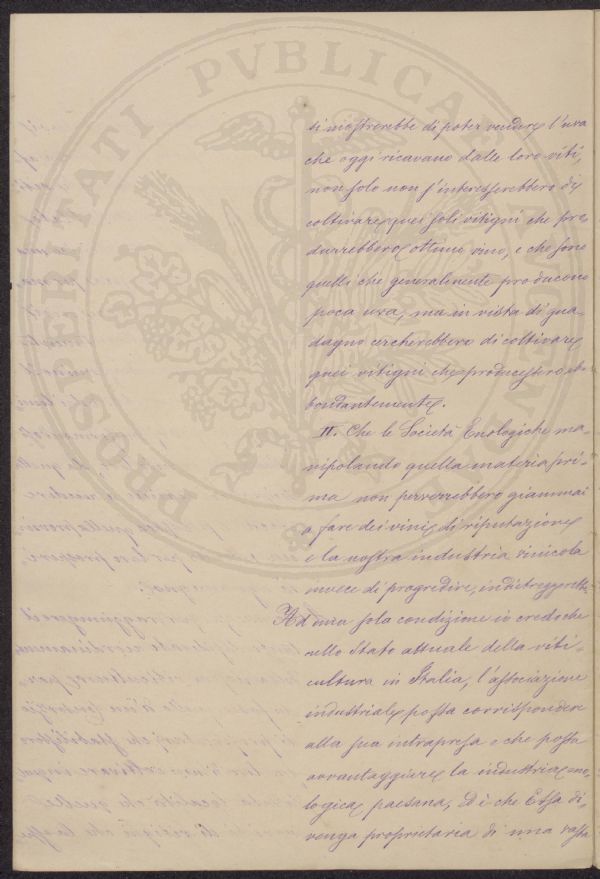 PROSPERITATI PVBLICAE AVGENDAE
si mostrerebbe di poter vendere l'uva
che oggi ricavano dalle loro viti,
non solo non s'interesserebbero di
coltivare quei soli vitigni che pro
durrebbero ottimo vino, e che sono
quelli che generalmente producono
poca uva, ma in vista di gua-
dagno cercherebbero di coltivare
quei vitigni che producessero ab
bondantemente.
II. Che le Società Enologiche ma-
nipolando quella materia pri-
ma non perverrebbero giammai
a fare dei vini di riputazione
e la nostra industria vinicola
invece di progredire, indietreggerebbe.
Ad una sola condizione io credo che
nello Stato attuale della viti-
cultura in Italia, l'associazione
industriale possa corrispondere
alla sua intrapresa e che possa
avvantaggiare la industria eno
logica paesana, ed è che Essa di-
venga proprietaria di una vasta